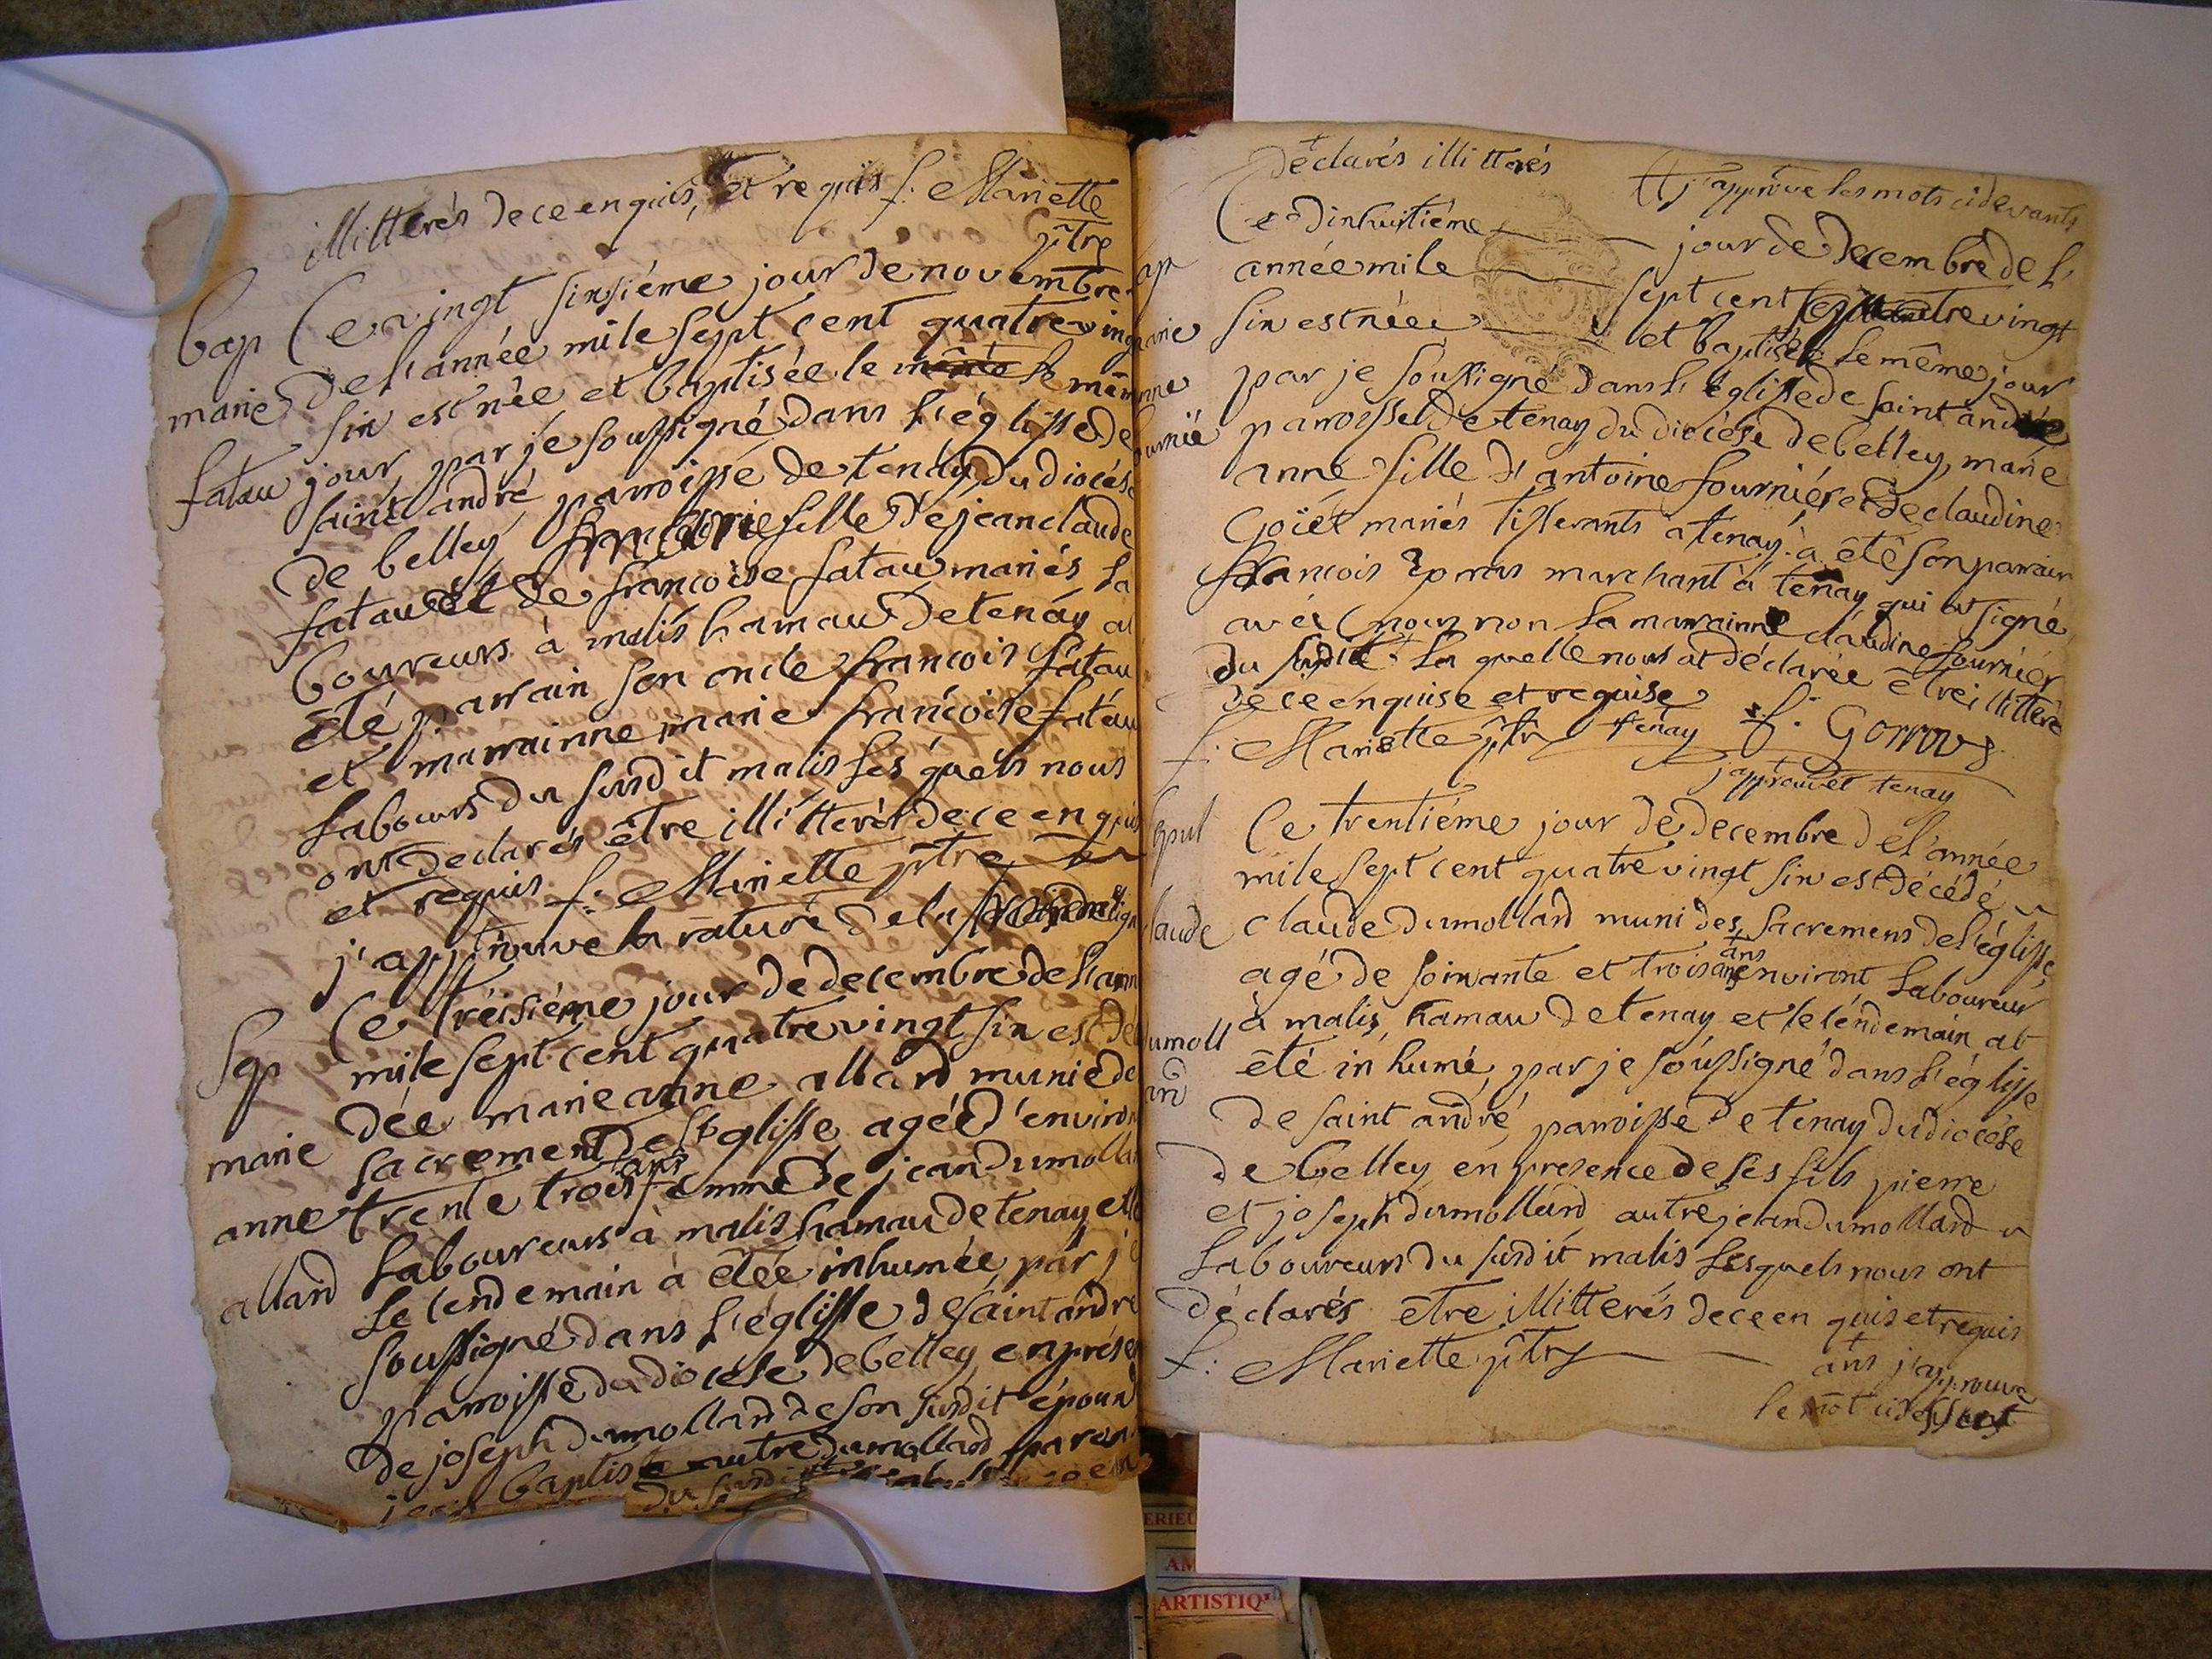 illitterés de ce enquis, et requis f: Mariette
ptre
bap Ce vingt sixsiéme jour de novembre
marie de l'année mile sept cent quatreving
six est née et baptisée le le mêm
fatau jour par je soussigné dans l'eglisse de
saint andré parroisse de tenay du diocése
de belley fille de jean claude
fatau et de francoise fatau mariés la
boureurs à malis hamau de tenay a
été parrain son oncle francois fatau
et marrainne marie francoise fatau
labours du susdit malis lesquels nous
ont declarés être illitterés de ce enquis
et requis f: Mariette ptre
j'approuve la rature de la
Sep Ce tréisiéme jour de decembre de l'ann
mile sept cent quatre vingt six est dé
marie dée marie anne allard munie de
sacrement de l'eglisse agée d'environ
ans
anne trente trois femme de jean dumolla
laboureurs à malis hamau de tenay et
allard le lendemain à étée inhumée par je
soussigné dans l'eglisse de saint andré
parroisse du diocése de belley en présen
de joseph dumollard de son susdit époux
jean baptiste autre dumollard paren
du susdit
déclarés illitterés
j'approuve les mots cidevants
ap Ce dixhuitiéme jour de decembre de l'
année mile sept cent tre vingt
arie six est née et baptisée le même jour
par je soussigné dans l'eglisse de saint andré
nne parroisse de tenay du diocése de belley, marie
ournié anne fille d'antoine fournier et de claudine
Goiét mariés tisserants a tenay à été son parrain
francois marchant à tenay qui at signé
avéc nous non la marrainne claudine fournier
du susdit la quelle nous at déclarée être illitteré
de ce enquise et requise
f: Mariette ptr tenay f: Gorroz
j'approuvét tenay
epul Ce trentiéme jour de decembre de l'année
mile sept cent quatre vingt six est décédé
laude claude dumollard muni des sacremens de l'église
ans
agé de soixante et trois ans environt laboureur
à malis, hamau de tenay et le lendemain at
umoll été inhumé par je soussigné dans l'églisse
ard de saint andré parroisse de tenay du diocése
de belley en presence de ses fils pierre
et joseph dumollard autre jean dumollard
laboureurs du susdit malis lesquels nous ont
déclarés être illitterés de ce enquis et requis
f: Mariette ptr
ans j'approuve
le mot cidessus
ERIEU
AM
ARTISTIQ